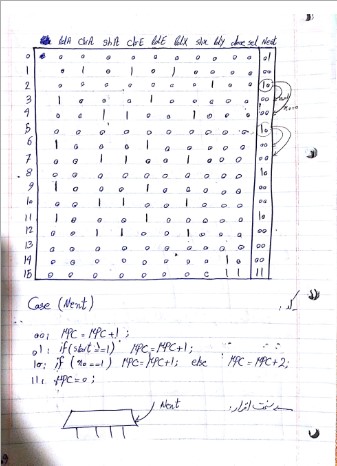 ldA clrA shA clrE ldE ldX shx ldY done sel Next
0 0 0 0 0 0 0 0 0 0 0 01
1 0 1 0 1 0 1 0 0 0 0 00
2 0 0 0 0 0 0 0 1 0 0 10
3 1 0 0 0 1 0 0 0 0 0 00
4 0 0 1 1 0 0 1 0 0 0 00
5 0 0 0 0 0 0 0 0 0 0 10
6 1 0 0 0 1 0 0 0 0 0 00
7 0 0 1 1 0 0 1 0 0 0 00
8 0 0 0 0 0 0 0 0 0 0 10
9 1 0 0 0 1 0 0 0 0 0 00
10 0 0 1 1 0 0 1 0 0 0 00
11 1 0 0 0 1 0 0 0 0 0 10
12 0 0 1 1 0 0 1 0 0 0 00
13 0 0 0 0 0 0 0 0 0 0 00
14
15
Case (Next)
00: MPC = MPC+1;
01: if (start == 1) MPC = MPC+1;
10: if (x0 == 1) MPC = MPC+1; else MPC = MPC+2;
11: MPC = 0;
Next
سخت افزار: